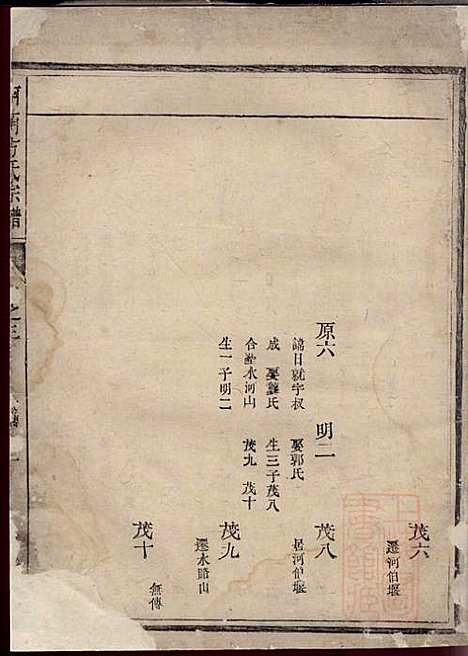 茂六
遷河伯堰
原六
諱日就字叔
成 娶龔氏
合葬水河山
生一子明二
明二
娶郭氏
生三子茂八
茂九 茂十
茂八
居河伯堰
茂九
遷水路山
茂十
無傳
南方氏宗譜
之三